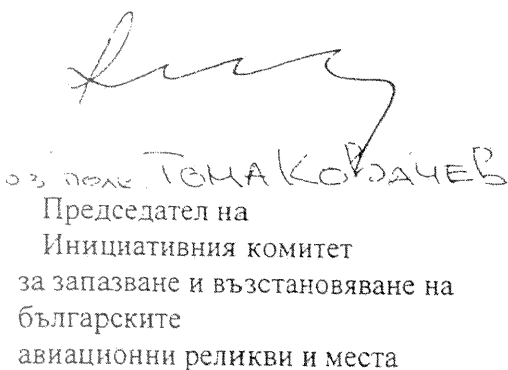 оз полк. ТОМА КОВАЧЕВ
Председател на
Инициативния комитет
за запазване и възстановяване на
българските
авиационни реликви и места